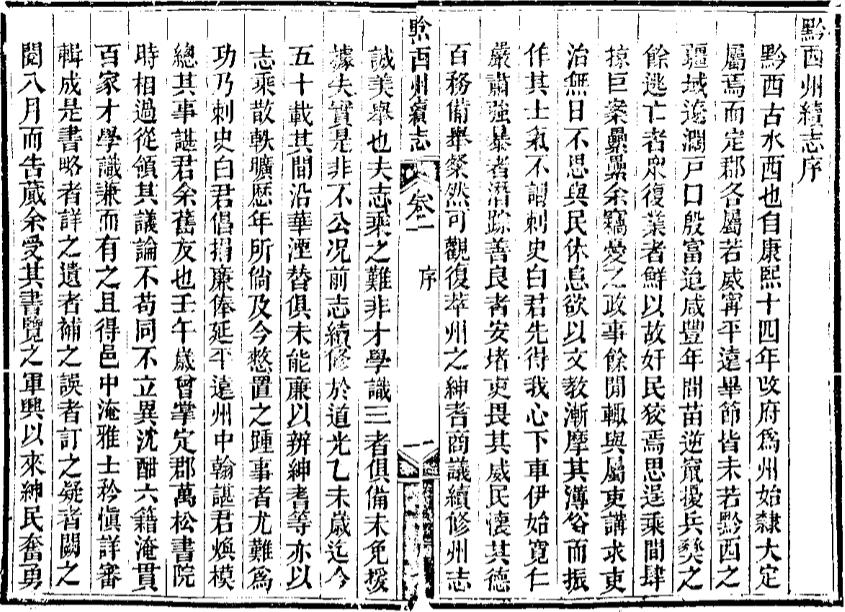 黔西州續志序
黔西古水西也自康熙十四年改府爲州始隸大定
屬焉而定郡各屬若威甯平遠畢節皆未若黔西之
疆域遼濶戸口殷富迨咸豐年間苗逆竄擾兵燹之
餘逃亡者衆復業者鮮以故奸民狡焉思逞乘間肆
掠巨案纍纍余竊憂之政事餘閒輒與屬吏講求吏
治無日不思與民休息欲以文教漸摩其薄俗而振
作其士氣不謂刺史白君先得我心下車伊始寬仁
嚴肅強暴者潛踪善良者安堵吏畏其威民懷其德
百務備舉粲然可觀復萃州之紳耆商議續修州志
黔西州續志 卷一 序 一
誠美舉也夫志乘之難非才學識三者俱備未免援
據失實是非不公况前志續修於道光乙未歲迄今
五十載其間沿革湮替俱未能亷以辨紳耆等亦以
志乘散軼曠歷年所倘及今憗置之踵事者尤難爲
功乃刺史白君倡捐廉俸延平遠州中翰諶君煥模
總其事諶君余舊友也壬午歲曾掌定郡萬松書院
時相過從領其議論不苟同不立異沈酣六籍淹貫
百家才學識兼而有之且得邑中淹雅士矜愼詳審
輯成是書略者詳之遺者補之誤者訂之疑者闕之
閱八月而告蕆余受其書覽之軍興以來紳民奮勇